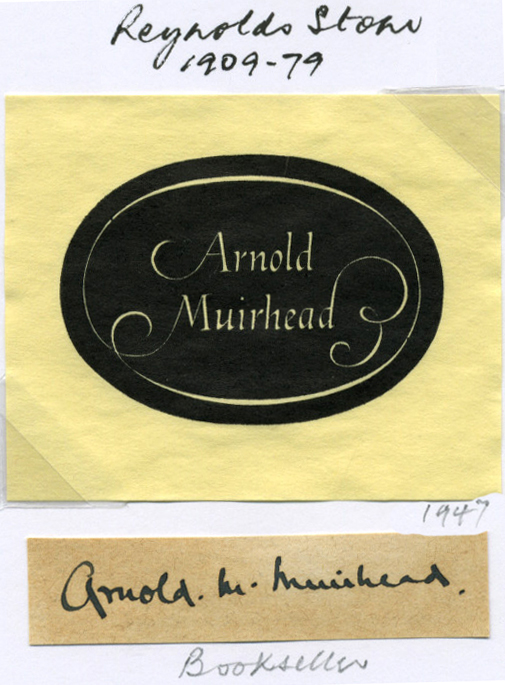 Reynolds Stone
1909-79
Arnold
Muirhead
1947
Arnold. M. Muirhead.
Bookseller